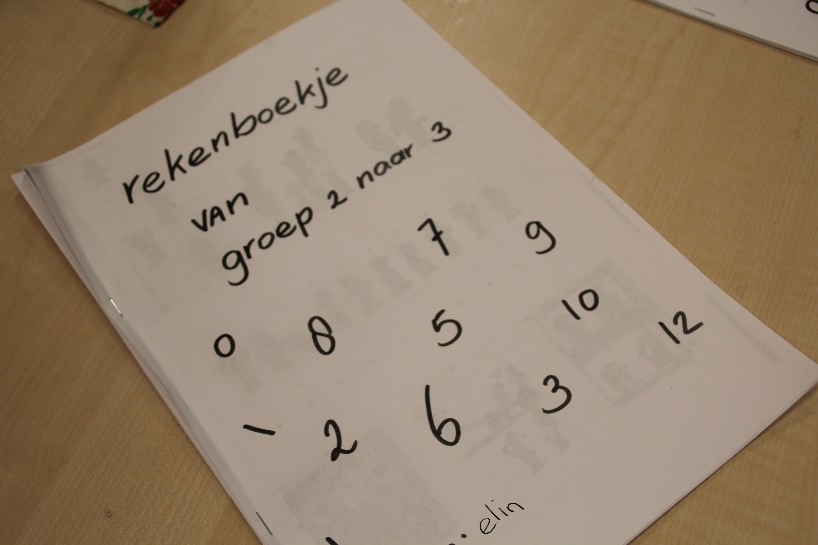 rekenboekje
VAN
groep 2 naar 3
7 9
0 8 5 10
1 2 6 3 12
elin